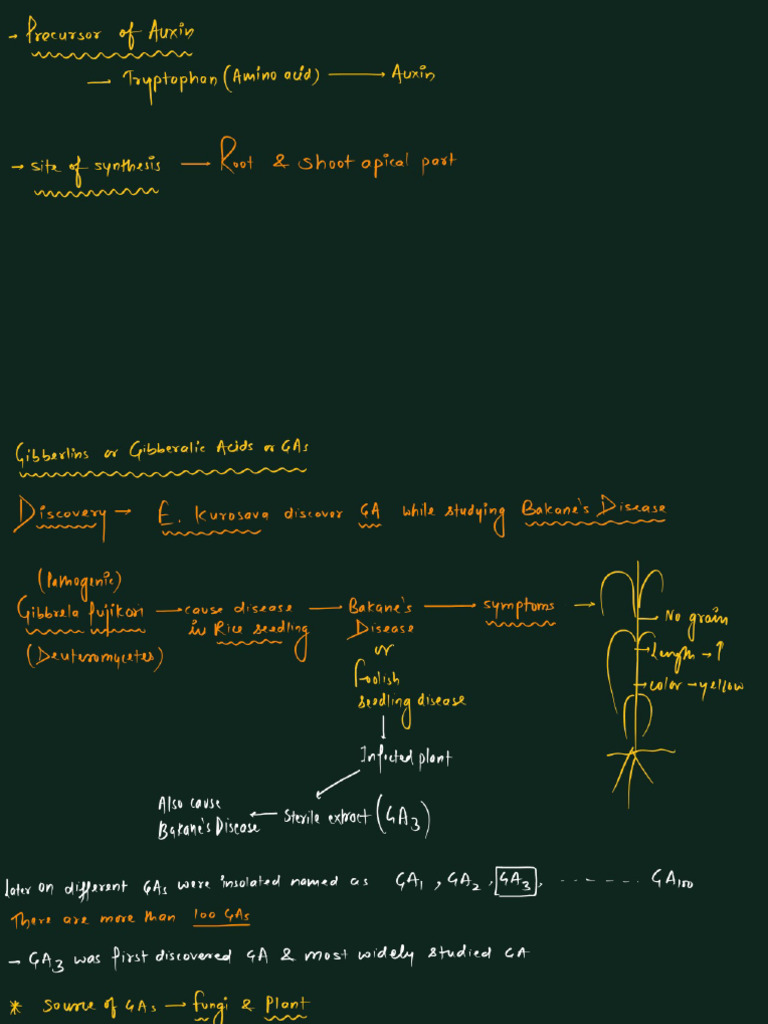 → Precursor of Auxin
— Tryptophan (Amino acid) → Auxin
→ site of synthesis → Root & shoot apical part
Gibberlins or Gibberalic Acids or GAs
Discovery → E. Kurosava discover GA while studying Bakane's Disease
(Pathogenic)
Gibbrela fujikori → cause disease in Rice seedling → Bakane's Disease → symptoms →
(Deuteromycetes)
or
Foolish
seedling disease
No grain
Length → ↑
color → yellow
Infected plant
Sterile extract (GA3)
Also cause
Bakane's Disease
Later on different GAs were insolated named as GA1, GA2, GA3, ------- GA100
There are more than 100 GAs
→ GA3 was first discovered GA & most widely studied GA
* Source of GAs → fungi & Plant